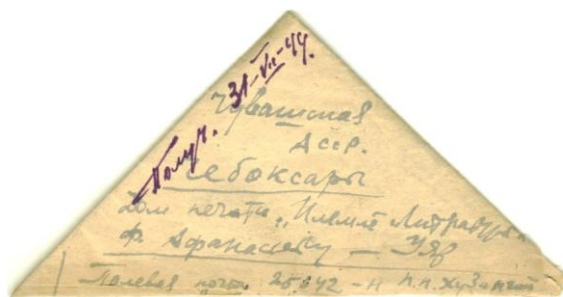 Получ. 31-VII-44.
Чувашская
АССР.
Чебоксары
Дом печати, "Илемлĕ Литература"
Ф. Афанасьеву —
Полевая почта 25842-Н п.п.